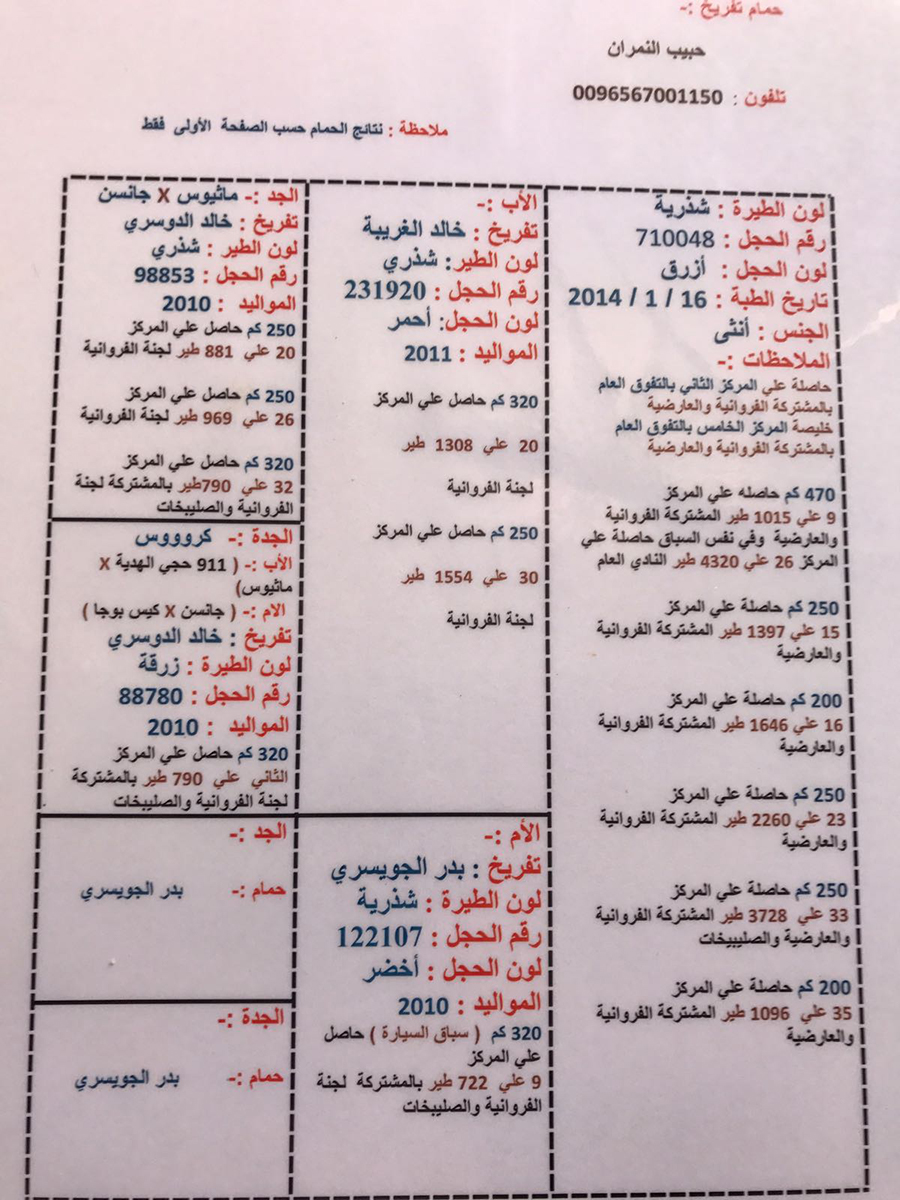 حمام تفريخ :-
حبيب النمران
تلفون : 0096567001150
ملاحظة : نتائج الحمام حسب الصفحة الأولى فقط
لون الطيرة : شذرية
رقم الحجل : 710048
لون الحجل : أزرق
تاريخ الطبة : 16 / 1 / 2014
الجنس : أنثى
الملاحظات :-
حاصلة علي المركز الثاني بالتفوق العام
بالمشتركة الفروانية والعارضية
خليصة المركز الخامس بالتفوق العام
بالمشتركة الفروانية والعارضية
470 كم حاصله علي المركز
9 علي 1015 طير المشتركة الفروانية
والعارضية وفي نفس السباق حاصلة علي
المركز 26 علي 4320 طير النادي العام
250 كم حاصلة علي المركز
15 علي 1397 طير المشتركة الفروانية
والعارضية
200 كم حاصلة علي المركز
16 علي 1646 طير المشتركة الفروانية
والعارضية
250 كم حاصلة علي المركز
23 علي 2260 طير المشتركة الفروانية
والعارضية
250 كم حاصلة علي المركز
33 علي 3728 طير المشتركة الفروانية
والعارضية والصليبيخات
200 كم حاصلة علي المركز
35 علي 1096 طير المشتركة الفروانية
والعارضية
الأب :-
تفريخ : خالد الغريبة
لون الطير: شذري
رقم الحجل : 231920
لون الحجل: أحمر
المواليد : 2011
320 كم حاصل علي المركز
20 علي 1308 طير
لجنة الفروانية
250 كم حاصل علي المركز
30 علي 1554 طير
لجنة الفروانية
الأم :-
تفريخ : بدر الجويسري
لون الطيرة : شذرية
رقم الحجل : 122107
لون الحجل : أخضر
المواليد : 2010
320 كم ( سباق السيارة ) حاصل
علي المركز
9 علي 722 طير بالمشتركة لجنة
الفروانية والصليبخات
الجد :- ماثيوس X جانسن
تفريخ : خالد الدوسري
لون الطير : شذري
رقم الحجل : 98853
المواليد : 2010
250 كم حاصل علي المركز
20 علي 881 طير لجنة الفروانية
250 كم حاصل علي المركز
26 علي 969 طير لجنة الفروانية
320 كم حاصل علي المركز
32 علي 790طير بالمشتركة لجنة
الفروانية والصليبخات
الجدة :- كروووس
الأب :- ( 911 حجي الهدية X
ماثيوس)
الام :- ( جانسن X كيس بوجا )
تفريخ : خالد الدوسري
لون الطيرة : زرقة
رقم الحجل : 88780
المواليد : 2010
320 كم حاصل علي المركز
الثاني علي 790 طير بالمشتركة
لجنة الفروانية والصليبخات
الجد :-
حمام :- بدر الجويسري
الجدة :-
حمام :- بدر الجويسري